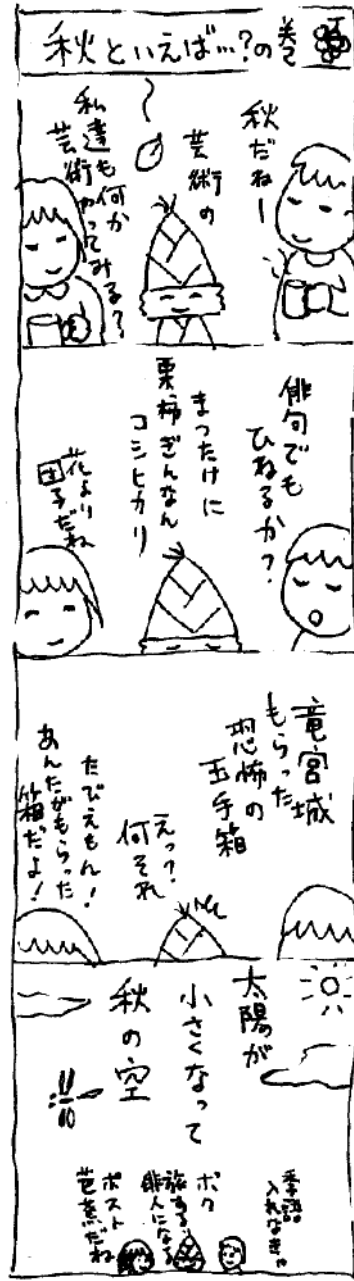 秋といえば…?の巻
秋だねー
芸術の
私達も何か
芸術やってみる?
俳句でも
ひねるか?
まつたけに
栗柿ぎんなん
コシヒカリ
花より
団子だね
竜宮城
もらった
恐怖の
玉手箱
えっ?
何それ
たびえもん!
あんたがもらった
箱だよ!
太陽が
小さくなって
秋の空
季語
入れなきゃ
ボク
旅する
俳人になる
ポスト
芭蕉だね